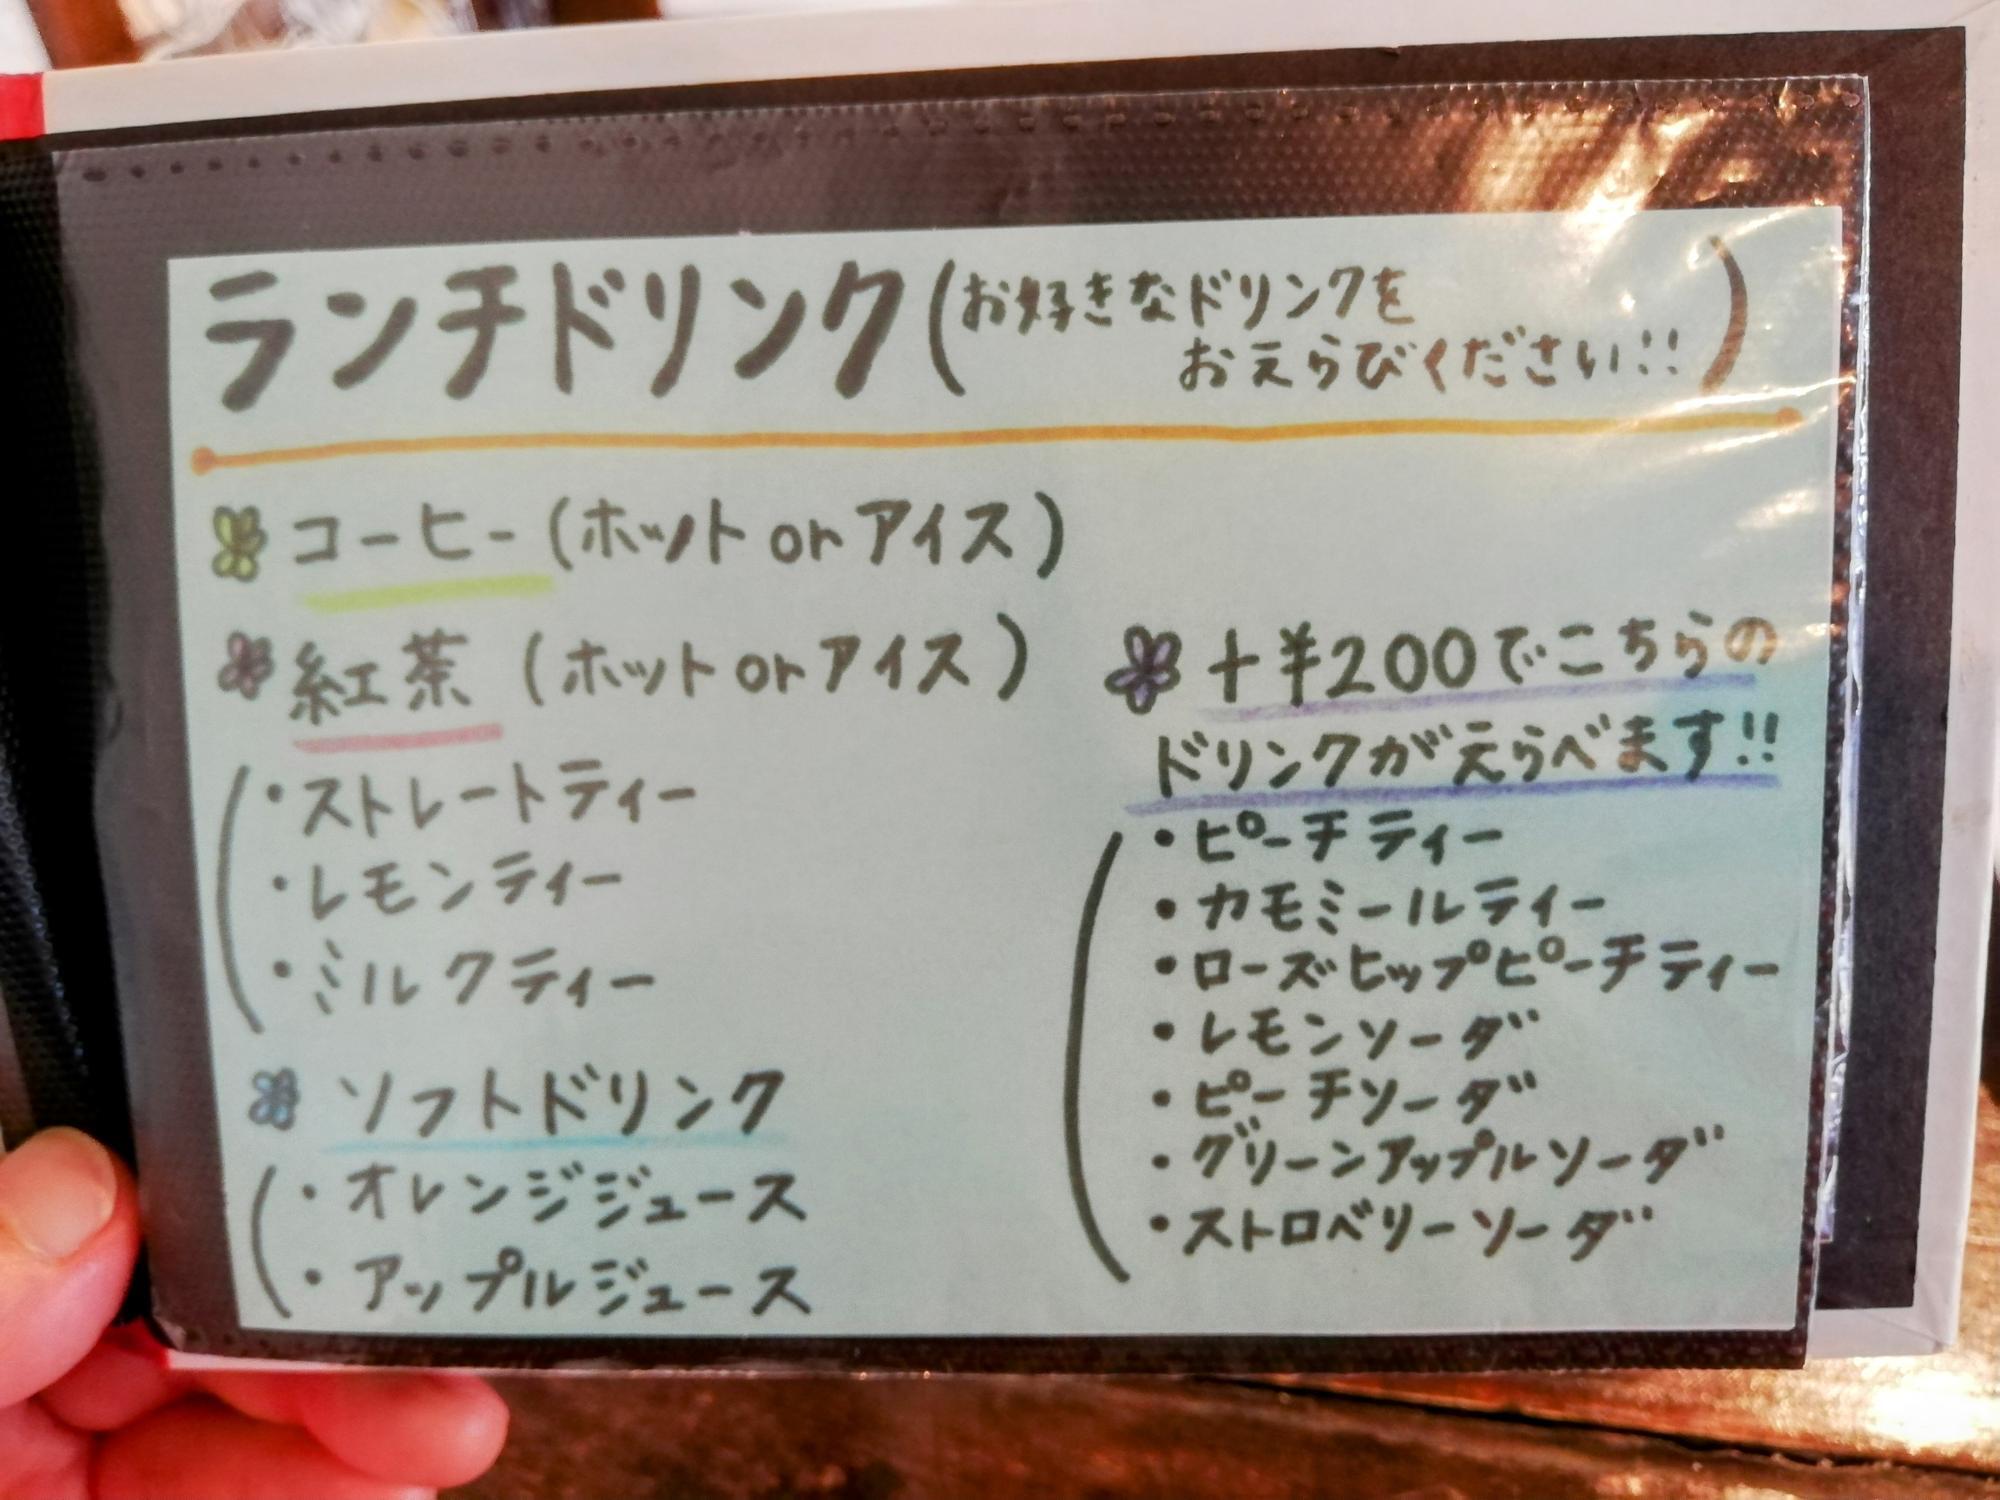 ランチドリンク(お好きなドリンクを
おえらびください!!)
コーヒー(ホット or アイス)
紅茶(ホット or アイス)
・ストレートティー
・レモンティー
・ミルクティー
ソフトドリンク
・オレンジジュース
・アップルジュース
+¥200でこちらの
ドリンクがえらべます!!
・ピーチティー
・カモミールティー
・ローズヒップピーチティー
・レモンソーダ
・ピーチソーダ
・グリーンアップルソーダ
・ストロベリーソーダ